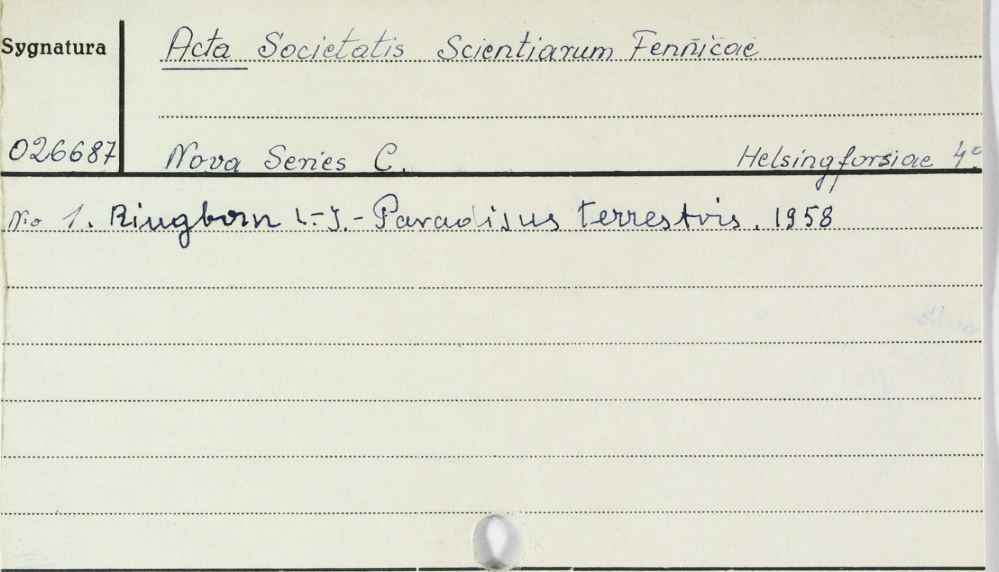 Sygnatura
Acta Societatis Scientiarum Fennicae
026687
Nova Series C. Helsingforsiae 4°
No 1. Ringbom L.-J. - Paradisus terrestris. 1958